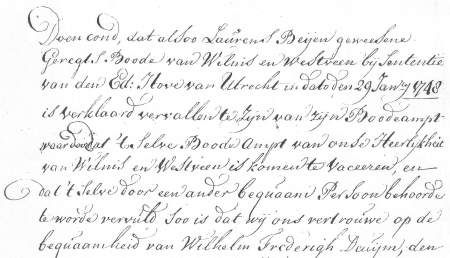 Doen cond, dat alsoo Laurens Beijen geweesene
Geregts Boode van Wilnis en Westveen bij Sententie
van den Ed: Hove van Utrecht in dato den 29 Janrij 1748
is verklaard vervallen te zijn van zijn Boodeampt
waar door dat 't Selve Boode Ampt van onse Heerlijkheit
van Wilnis en Westveen is komen te vaceeren, en
dat 't Selve door een ander bequaam Persoon behoorde
te worde vervuld Soo is dat wij ons vertrouwe op de
bequaamheid van Wilhelm Frederigh Duijm, den